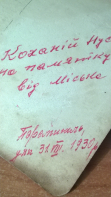 Коханій Нусі
на памятку
від Міська
Перемишль,
дня 31. III. 1930 р.